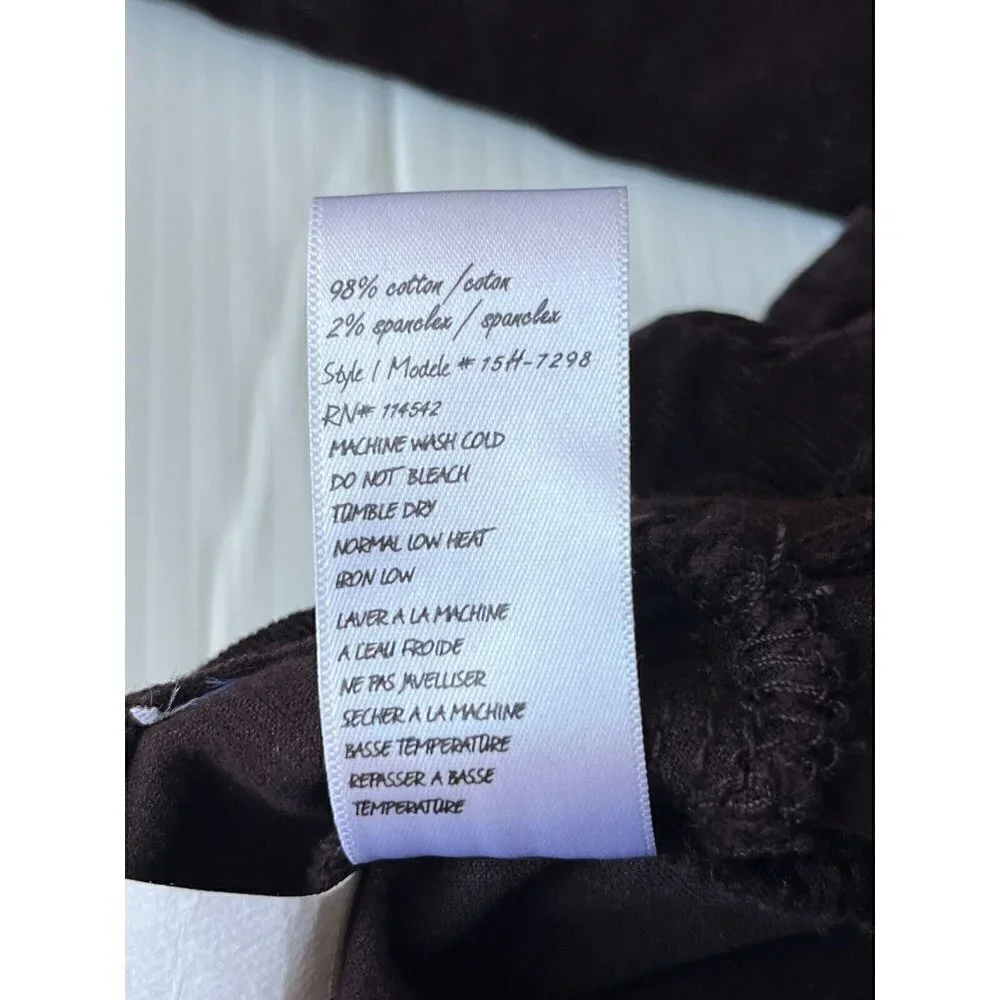 98% cotton / coton
2% spandex / spandex
Style / Modele # 15H-7298
RN# 114542
MACHINE WASH COLD
DO NOT BLEACH
TUMBLE DRY
NORMAL LOW HEAT
IRON LOW
LAVER A LA MACHINE
A L'EAU FROIDE
NE PAS JAVELLISER
SECHER A LA MACHINE
BASSE TEMPERATURE
REPASSER A BASSE
TEMPERATURE